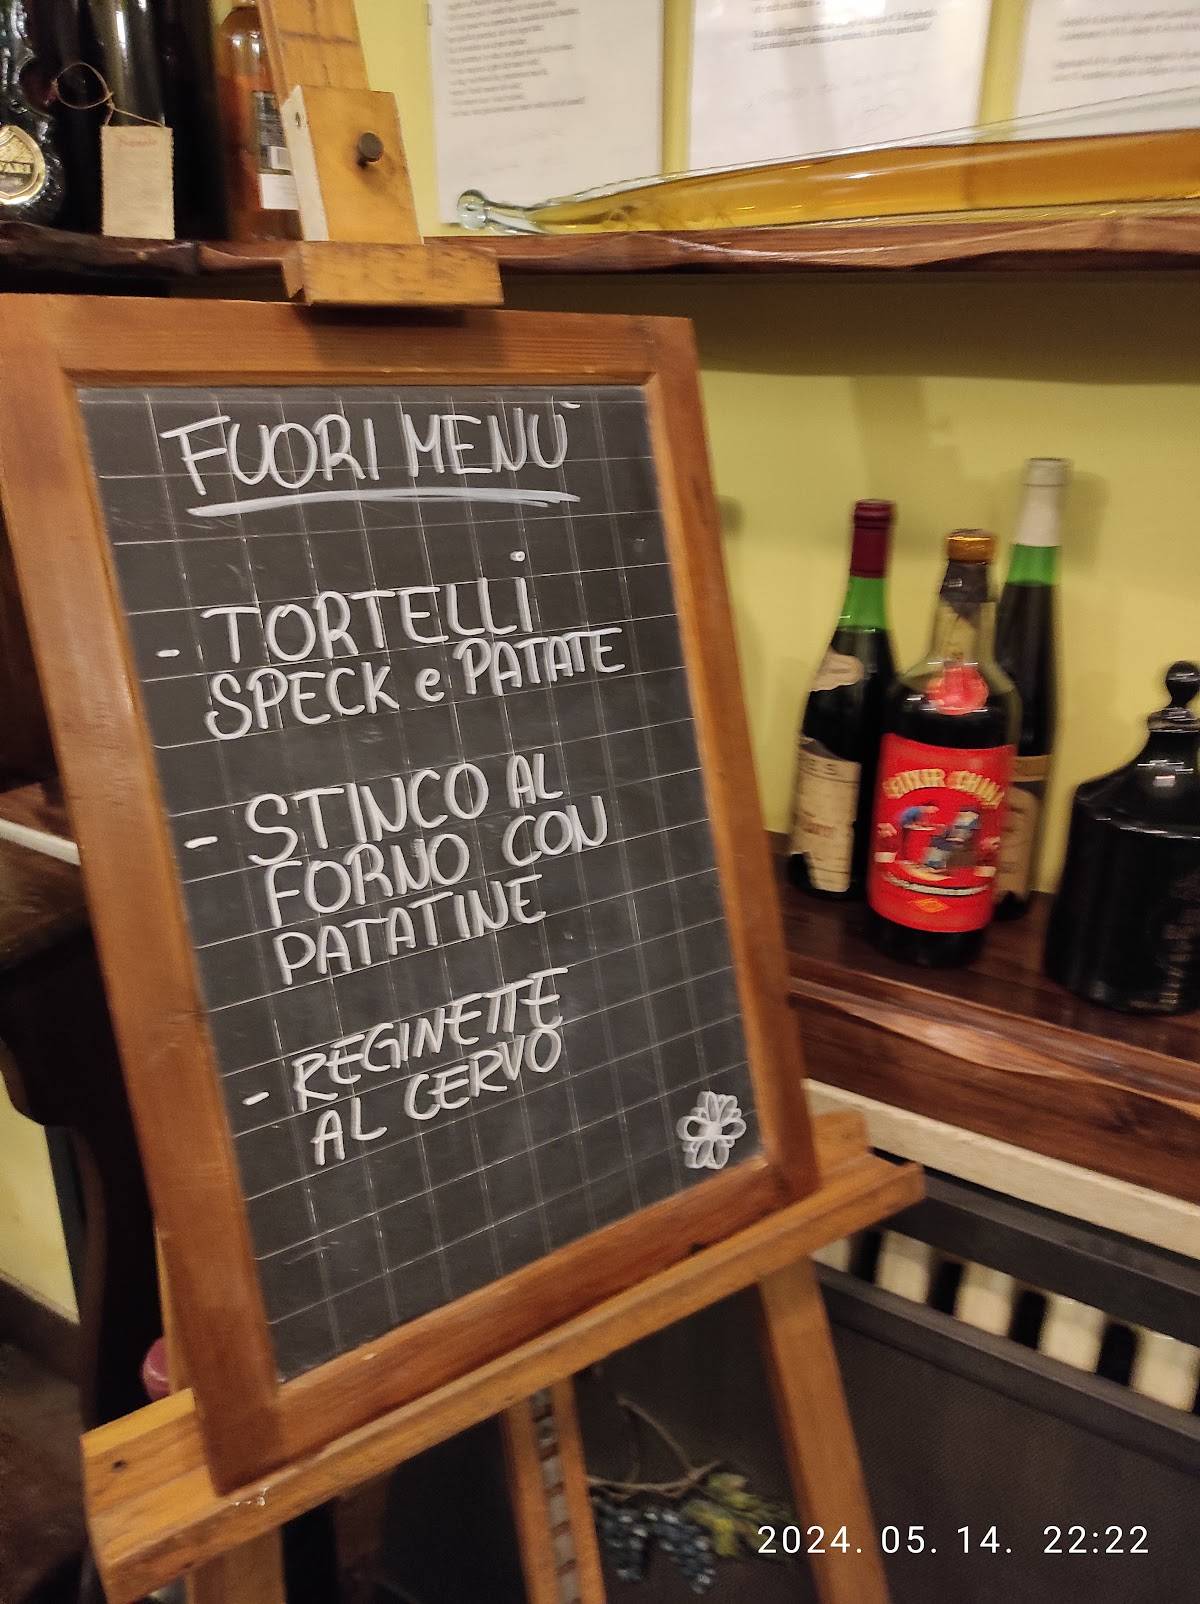 FUORI MENÙ
- TORTELLI
SPECK e PATATE
- STINCO AL
FORNO CON
PATATINE
- REGINETTE
AL CERVO
ELIXIR CHINA
2024. 05. 14. 22:22